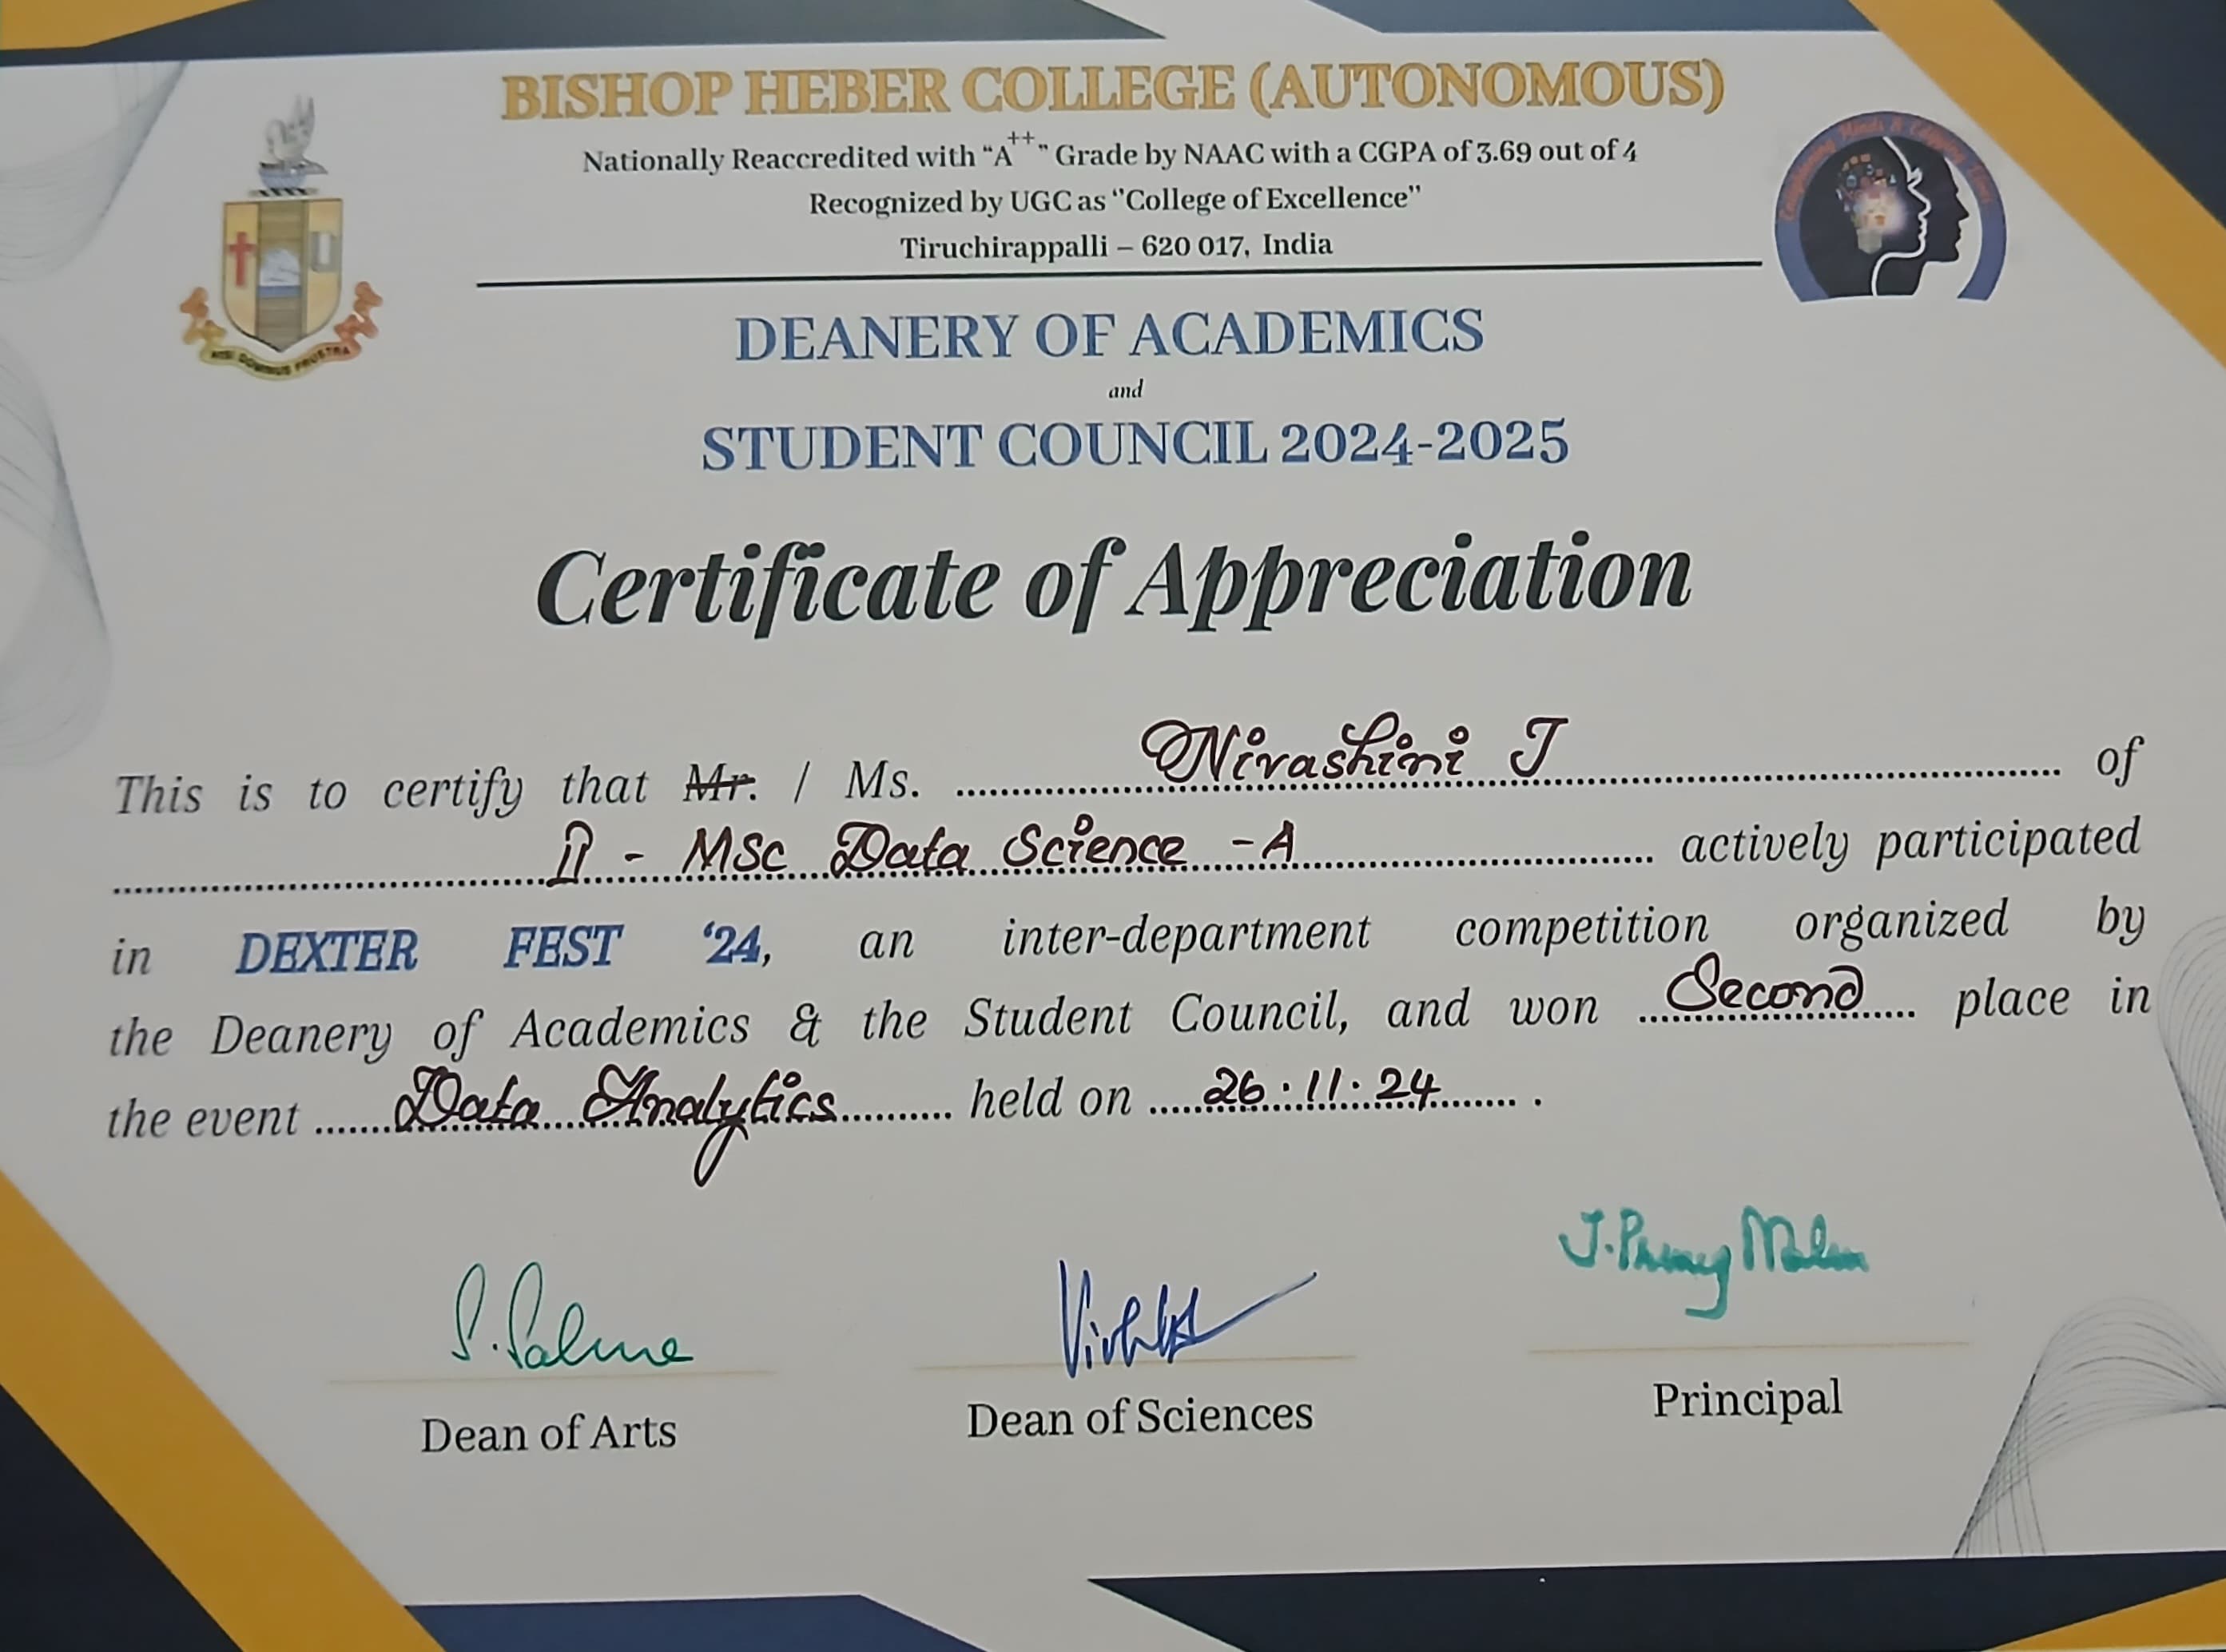 BISHOP HEBER COLLEGE (AUTONOMOUS)
Nationally Reaccredited with “A++” Grade by NAAC with a CGPA of 3.69 out of 4
Recognized by UGC as "College of Excellence"
Tiruchirappalli – 620 017, India
NISI DOMINUS FRUSTRA
DEANERY OF ACADEMICS
and
STUDENT COUNCIL 2024-2025
Certificate of Appreciation
This is to certify that Mr. / Ms. Nivashini J of
II - MSc Data Science - A actively participated
in DEXTER FEST ‘24, an inter-department competition organized by
the Deanery of Academics & the Student Council, and won Second place in
the event Data Analytics held on 26.11.24 .
Dean of Arts
Dean of Sciences
Principal